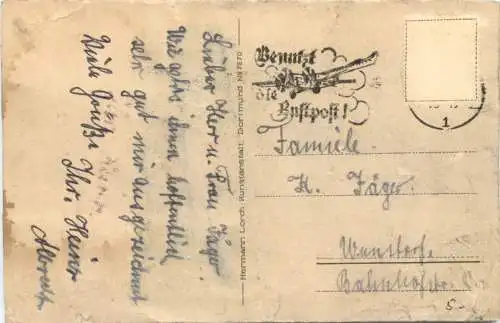 Lieber Herr u. Frau Jäger
Wie gehts ihnen hoffentlich
sehr gut mir ausgezeichnet
Viele Grüße Ihr. Heinz
Albrecht
Hermann Lorch, Kunstanstalt, Dortmund
Benutzt
die
Luftpost!
1
Familie
K. Jäger.
Wunstorf.
Bahnhofstr.
5.-